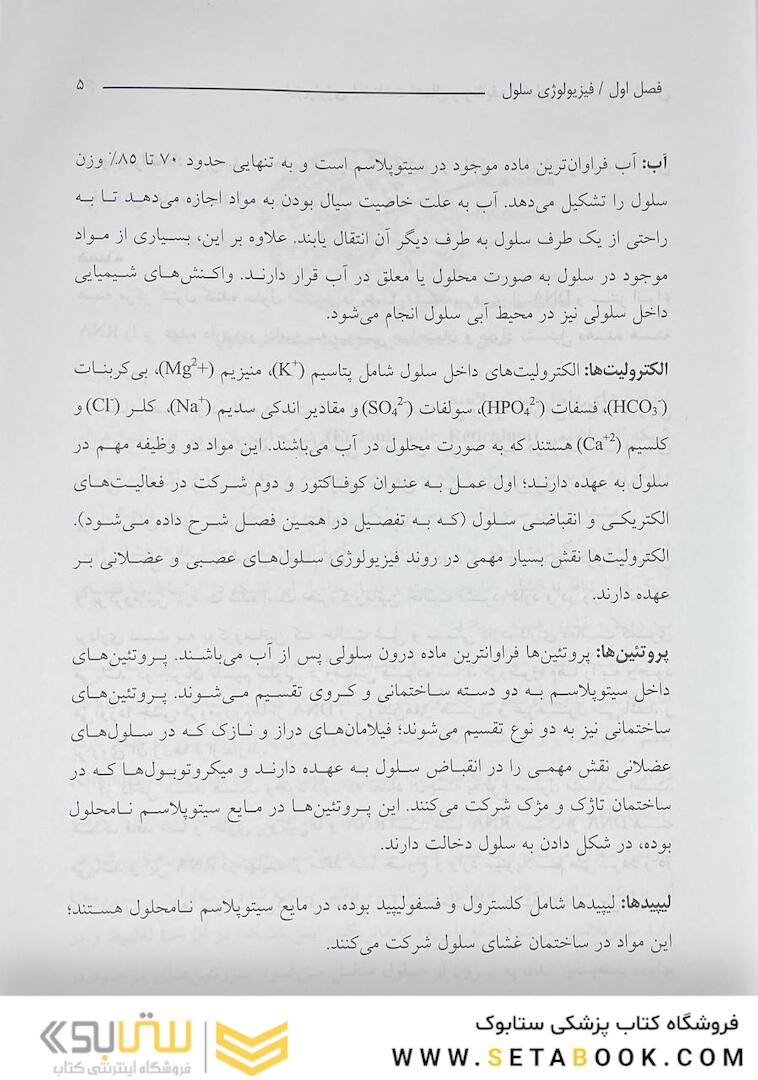 فصل اول / فیزیولوژی سلول ۵
آب: آب فراوان‌ترین ماده موجود در سیتوپلاسم است و به تنهایی حدود ۷۰ تا ۸۵٪ وزن
سلول را تشکیل می‌دهد. آب به علت خاصیت سیال بودن به مواد اجازه می‌دهد تا به
راحتی از یک طرف سلول به طرف دیگر آن انتقال یابند. علاوه بر این، بسیاری از مواد
موجود در سلول به صورت محلول یا معلق در آب قرار دارند. واکنش‌های شیمیایی
داخل سلولی نیز در محیط آبی سلول انجام می‌شود.
الکترولیت‌ها: الکترولیت‌های داخل سلول شامل پتاسیم (K⁺)، منیزیم (Mg²⁺)، بی‌کربنات
(HCO₃⁻)، فسفات (HPO₄²⁻)، سولفات (SO₄²⁻) و مقادیر اندکی سدیم (Na⁺)، کلر (Cl⁻) و
کلسیم (Ca⁺²) هستند که به صورت محلول در آب می‌باشند. این مواد دو وظیفه مهم در
سلول به عهده دارند؛ اول عمل به عنوان کوفاکتور و دوم شرکت در فعالیت‌های
الکتریکی و انقباضی سلول (که به تفصیل در همین فصل شرح داده می‌شود).
الکترولیت‌ها نقش بسیار مهمی در روند فیزیولوژی سلول‌های عصبی و عضلانی بر
عهده دارند.
پروتئین‌ها: پروتئین‌ها فراوانترین ماده درون سلولی پس از آب می‌باشند. پروتئین‌های
داخل سیتوپلاسم به دو دسته ساختمانی و کروی تقسیم می‌شوند. پروتئین‌های
ساختمانی نیز به دو نوع تقسیم می‌شوند؛ فیلامان‌های دراز و نازک که در سلول‌های
عضلانی نقش مهمی را در انقباض سلول به عهده دارند و میکروتوبول‌ها که در
ساختمان تاژک و مژک شرکت می‌کنند. این پروتئین‌ها در مایع سیتوپلاسم نامحلول
بوده، در شکل دادن به سلول دخالت دارند.
لیپیدها: لیپیدها شامل کلسترول و فسفولیپید بوده، در مایع سیتوپلاسم نامحلول هستند؛
این مواد در ساختمان غشای سلول شرکت می‌کنند.
فروشگاه کتاب پزشکی ستابوک
WWW.SETABOOK.COM
ستابوک
فروشگاه اینترنتی کتاب